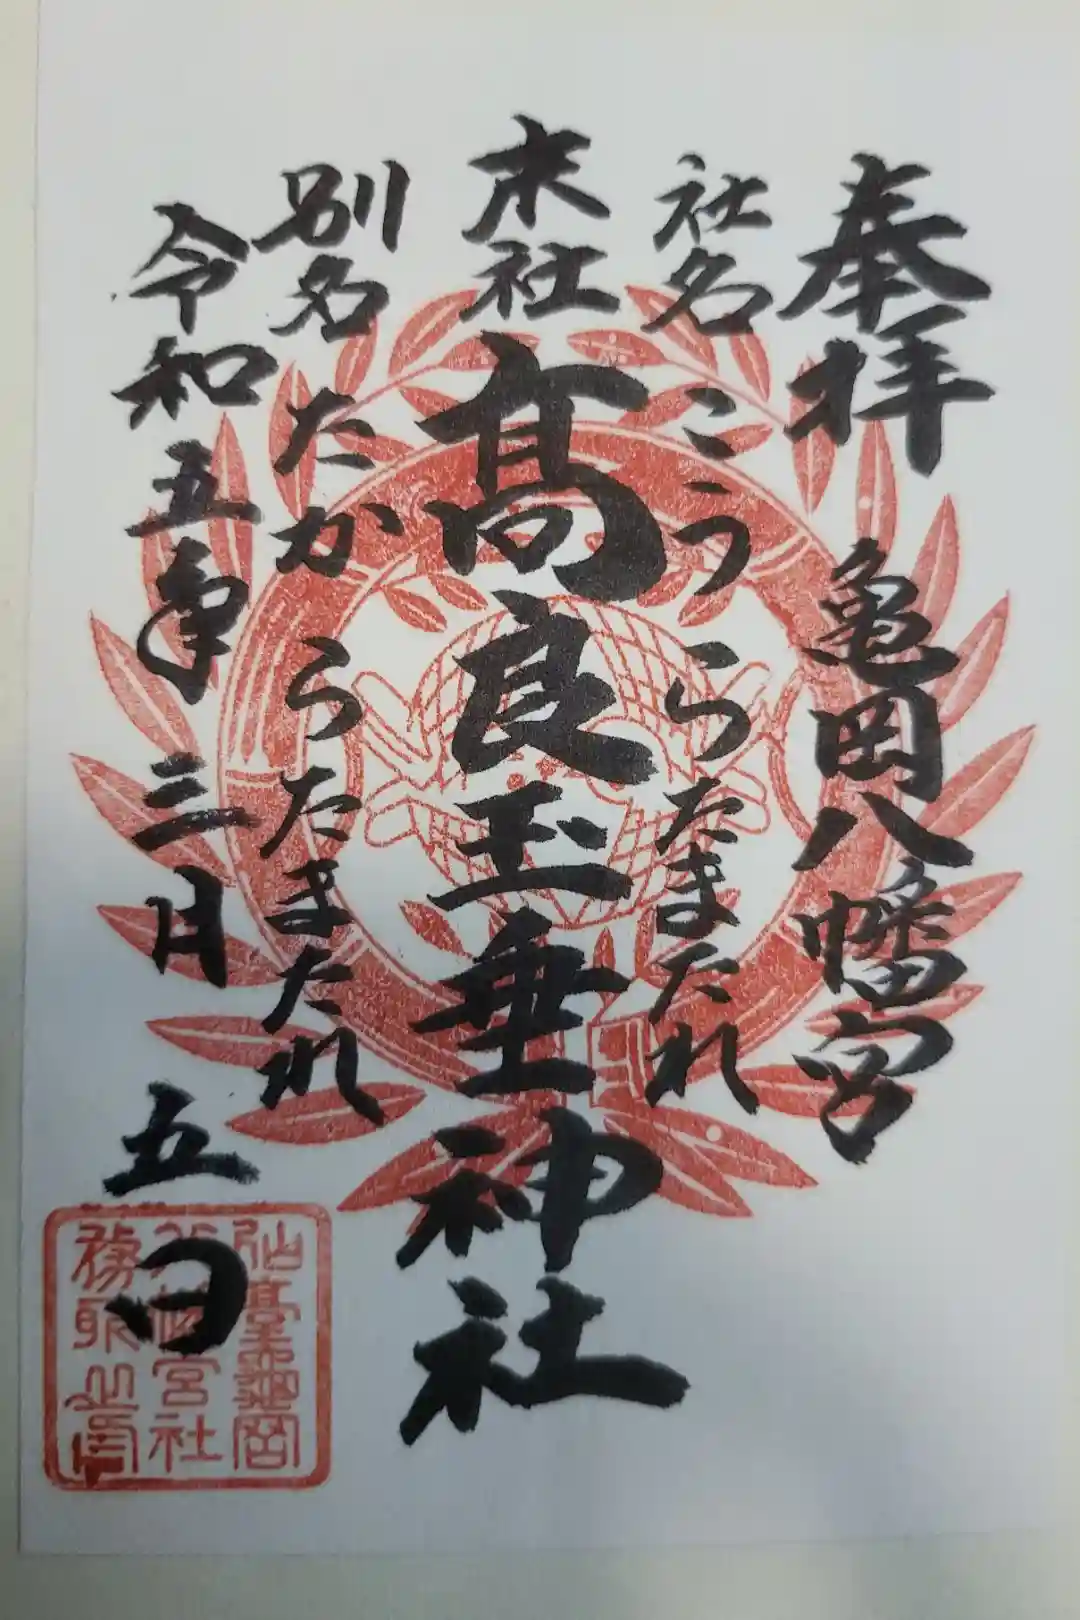 奉拝 亀岡八幡宮
社名 こうらたまたれ
末社 髙良玉垂神社
別名 たからたまたれ
令和五年三月五日
仙臺龜岡
八幡宮社
務所之印